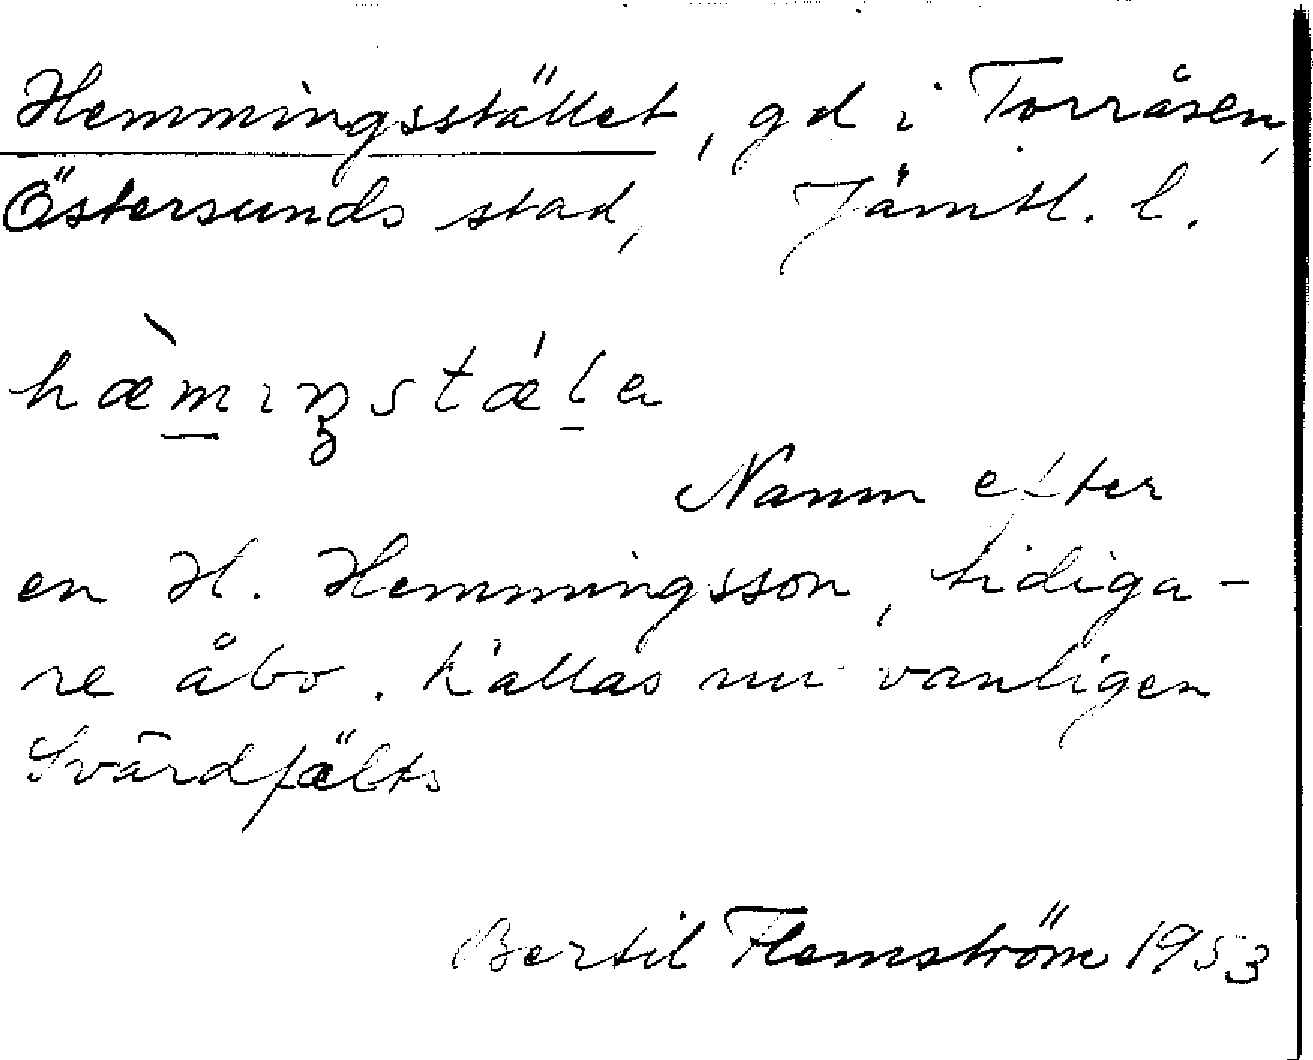 Hemmingsstället, gd i Torråsen,
Östersunds stad, Jämtl. l.
hæ̀m̲ıŋstǽl̲a
Namn efter
en H. Hemmingsson, tidiga-
re åbo. Kallas nu vanligen
Svärdfälts
Bertil Flemström 1953